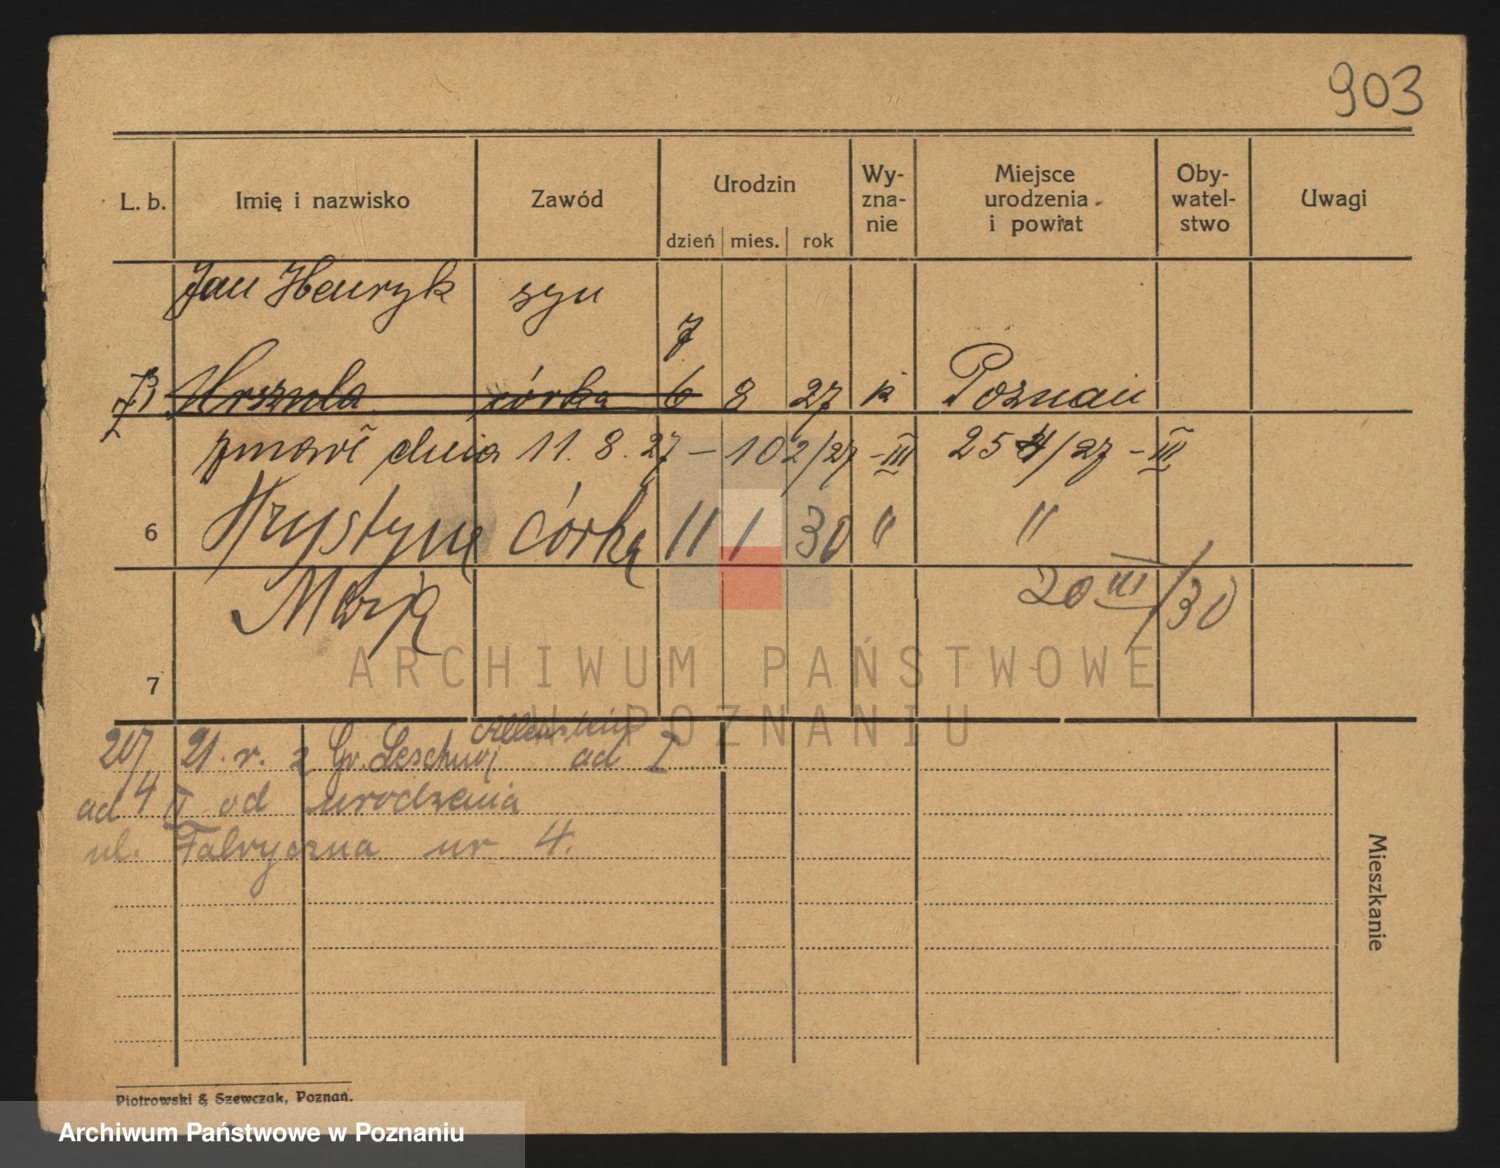 903
L. b. Imię i nazwisko Zawód Urodzin dzień mies. rok Wy-zna-nie Miejsce urodzenia i powiat Oby-watel-stwo Uwagi
Jan Henryk syn
7
Urszula córka 6 8 27 k Poznań
zmarł dnia 11. 8. 27 – 102/27 – III 254/27 – III
6 Krystyna córka 11 1 30 " "
Marja 20 III/30
7
Allenstein
20/4 21. r. z Gr. ad I
ad II od urodzenia
ul. Fabryczna nr 4.
Mieszkanie
Piotrowski & Szewczak, Poznań.
ARCHIWUM PAŃSTWOWE
W POZNANIU
Archiwum Państwowe w Poznaniu